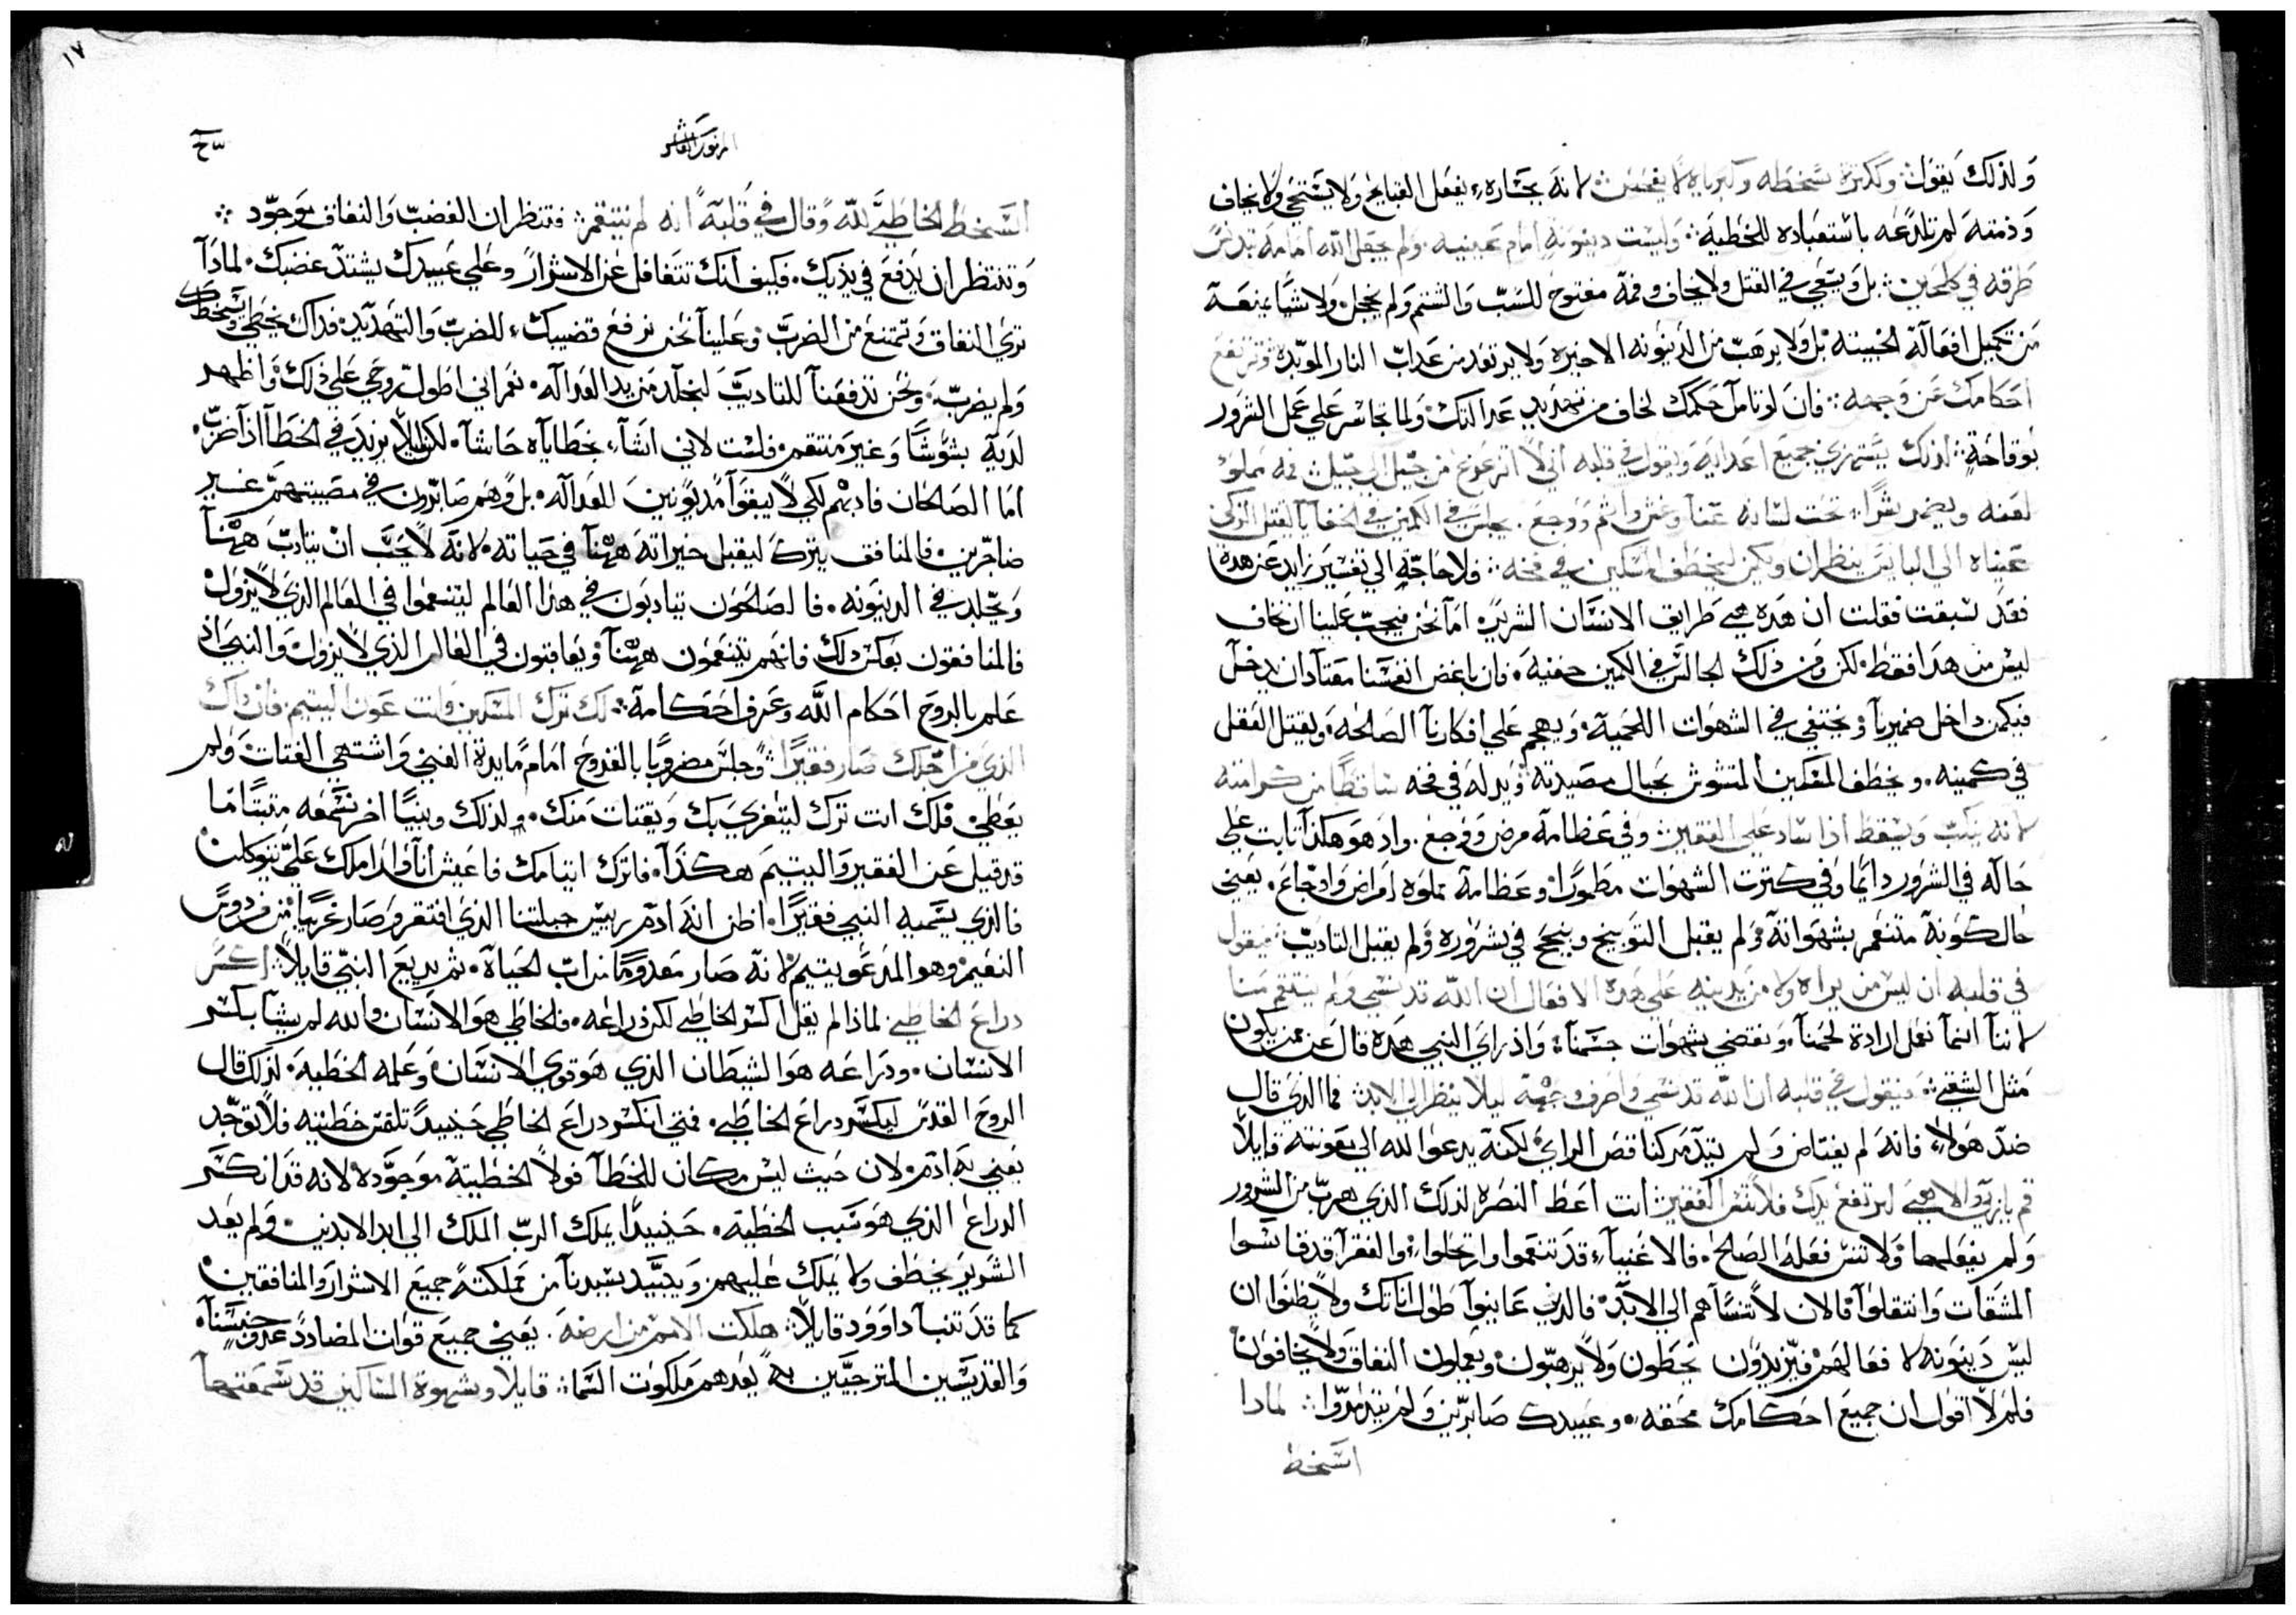 ولذلك يقول وكترة سخطه وكبرياه لا يفحص لانه بجساره يفعل القبايح ولا يستحي ولا يخاف
وذمته لم تلدعه باستعباده للخطيه وليست دينونه امام عينيه ولم يجعل الله امامه تدنس
طرقه في كل حين بل ويتقي في القتل ولا يخاف وفمه مفتوح للسب والشتم ولم يخجل ولا شيا يمنعه
من تكميل افعاله الخبيته بل ولا يرهب من الدينونه الاخيره ولا يرتعد من عداب النار الموبده وترتفع
احكامك عن وجهه فان لو تامل حكمك لخاف من تهديد عدالتك ولما تجاسر علي عمل الشرور
بوقاحة لذلك يستهزي بجميع اعدايه ويقول في قلبه اني لا اتزعزع من جيل الي جيل فمه مملو
لعنه ويضمر شرا تحت لسانه عنا وغش واثم ووجع يجلس في الكمين في الخفايا ليقتل الزكي
عيناه الي البايس ينظران ويكمن ليخطف المسكين في فخه فلا حاجة الي تفسير زايد عن هده
فقد سبقت فقلت ان هده هي طرايق الانسان الشرير اما نحن فيجب علينا ان نخاف
ليس من هدا فقط لكن ومن ذلك الجالس في الكمين خفيه فان باغض انفسنا معتاد ان يدخل
فيكمن داخل ضميرنا ويختفي في الشهوات اللحميه ويهجم علي افكارنا الصالحه ويقتل العقل
في كمينه ويخطف المسكين المتشوش بحبال مصيدته ويدله في فخه ساقطا من كرامته
لانه ينكب ويسقط اذا ساد علي الفقير وفي عظامه مرض ووجع واد هو هكذا تابت علي
حاله في الشرور دايما وفي كترت الشهوات مطمورا وعظامه مملوه امراض واوجاع يعني
حال كونه متنعم بشهواته ولم يقبل التوبيخ وينجح في شروره ولم يقبل التاديب فيقول
في قلبه ان ليس من يراه ولا من يدينه علي هده الافعال ان الله قد نسي ولم ينتقم منا
لاننا انما نعمل ارادة لحمنا ونقضي شهوات جسمنا واذ راي النبي هده قال عن من يكون
مثل الشقي فيقول في قلبه ان الله قد نسي واصرف وجهه ليلا ينظر الي الابد فما الذي قال
ضد هولاء فانه لم يغتاض ولم يتدمر كمناقض الراي لكنه يدعوا لله الي معونته قايلا
قم يا رب والاهي لترتفع يدك فلا تنس الفقير انت اعط النصره لذلك الذي هرب من الشرور
ولم يفعلها ولا تنس فعله الصالح فالاغنياء قد تنعموا وارتحلوا والفقرا قد قاسوا
المشقات وانتقلوا فالان لا تنساهم الي الابد فالذين عاينوا طول اناتك ولا يظنوا ان
ليس دينونه لافعالهم فيزيدون يخطون ولا يرهبون ويعملون النفاق ولا يخافون
فلم لا اقول ان جميع احكامك محقه وعبيدك صابرين ولم يتدمروا لمادا
اسخط
١٧
المزمور العاشر
اسخط الخاطي لله وقال في قلبه انه لم ينتقم فتنظر ان الغضب والنفاق موجود
وتنتظر ان يدفع في يديك فكيف انك تتغافل عن الاشرار وعلي عبيدك يشتد غضبك لمادا
تري النفاق وتمتنع من الضرب وعلينا نحن نرفع قضيبك للضرب والتهديد فداك يخطي ويسخطك
ولم يضرب ونحن تدفعنا للتاديب لنجلد من يد العداله نعم اني اطول روحي علي ذلك واظهر
لديه بشوشا وغير منتقم فلست لاني اشاء بخطاياه حاشا لكن ليلا يزيد في الخطا اذا ضرب
اما الصالحان فاديهم لكي لا يبقوا مديونين للعداله بل وهم صابرون في مصيبتهم غير
ضاجرين فالمنافق يترك ليقبل خيراته ههنا في حياته لانه لا يحب ان يتادب ههنا
ويجلد في الدينونه فالصالحون يتادبون في هدا العالم ليتنعموا في العالم الذي لا يزول
فالمنافقون بعكس ذلك فانهم يتنعمون ههنا ويعاقبون في العالم الذي لا يزول والنبي اذ
علم بالروح احكام الله وعرف احكامه لك ترك المسكين وانت عون اليتيم فان داك
الذي من اجلك صار فقيرا وجلس مضروبا بالقروح امام مايدة الغني واشتهي الفتات ولم
يعطي فلك انت ترك ليتعزي بك ويقتات منك ولذلك ونبيا اخر نسمعه متبتا ما
قد قيل عن الفقير واليتيم هكذا فاترك ايتامك فاعيش انا وارامك علي تتوكلن
فالذي يسميه النبي فقيرا اظن انه ادم رييس جبلتنا الذي افتقر وصار غريبا من فردوس
النعيم وهو المدعو يتيم لانه صار معدوما من اب الحياة ثم يديع النبي قايلا اكسر
دراع الخاطي لماذا لم يقل اكسر الخاطي لكن ذراعه فالخاطي هو الانسان والله لم يشا بكسر
الانسان ودراعه هو الشيطان الذي هو قوي الانسان وعلمه الخطيه لذلك قال
الروح القدس ليكسر دراع الخاطي فمتي انكسر دراع الخاطي حينيد تلتقس خطيته فلا توجد
يعني به ادم لان حيث ليس مكان للخطا فولا الخطيته موجوده لانه قد انكسر
الدراع الذي هو سبب الخطيه حينيدا يملك الرب الملك الي ابد الابدين ولم يعد
الشرير يخطف ولا يملك عليهم ويبيد سيدنا من مملكته جميع الاشرار والمنافقين
كما قد تنبا داوود قايلا هلكت الامم من ارضه يعني جميع قوات المضاددد جنسنا
والقديسين المترجيين له يعدهم ملكوت السما قايلا وشهوة المساكين قد سمعتها